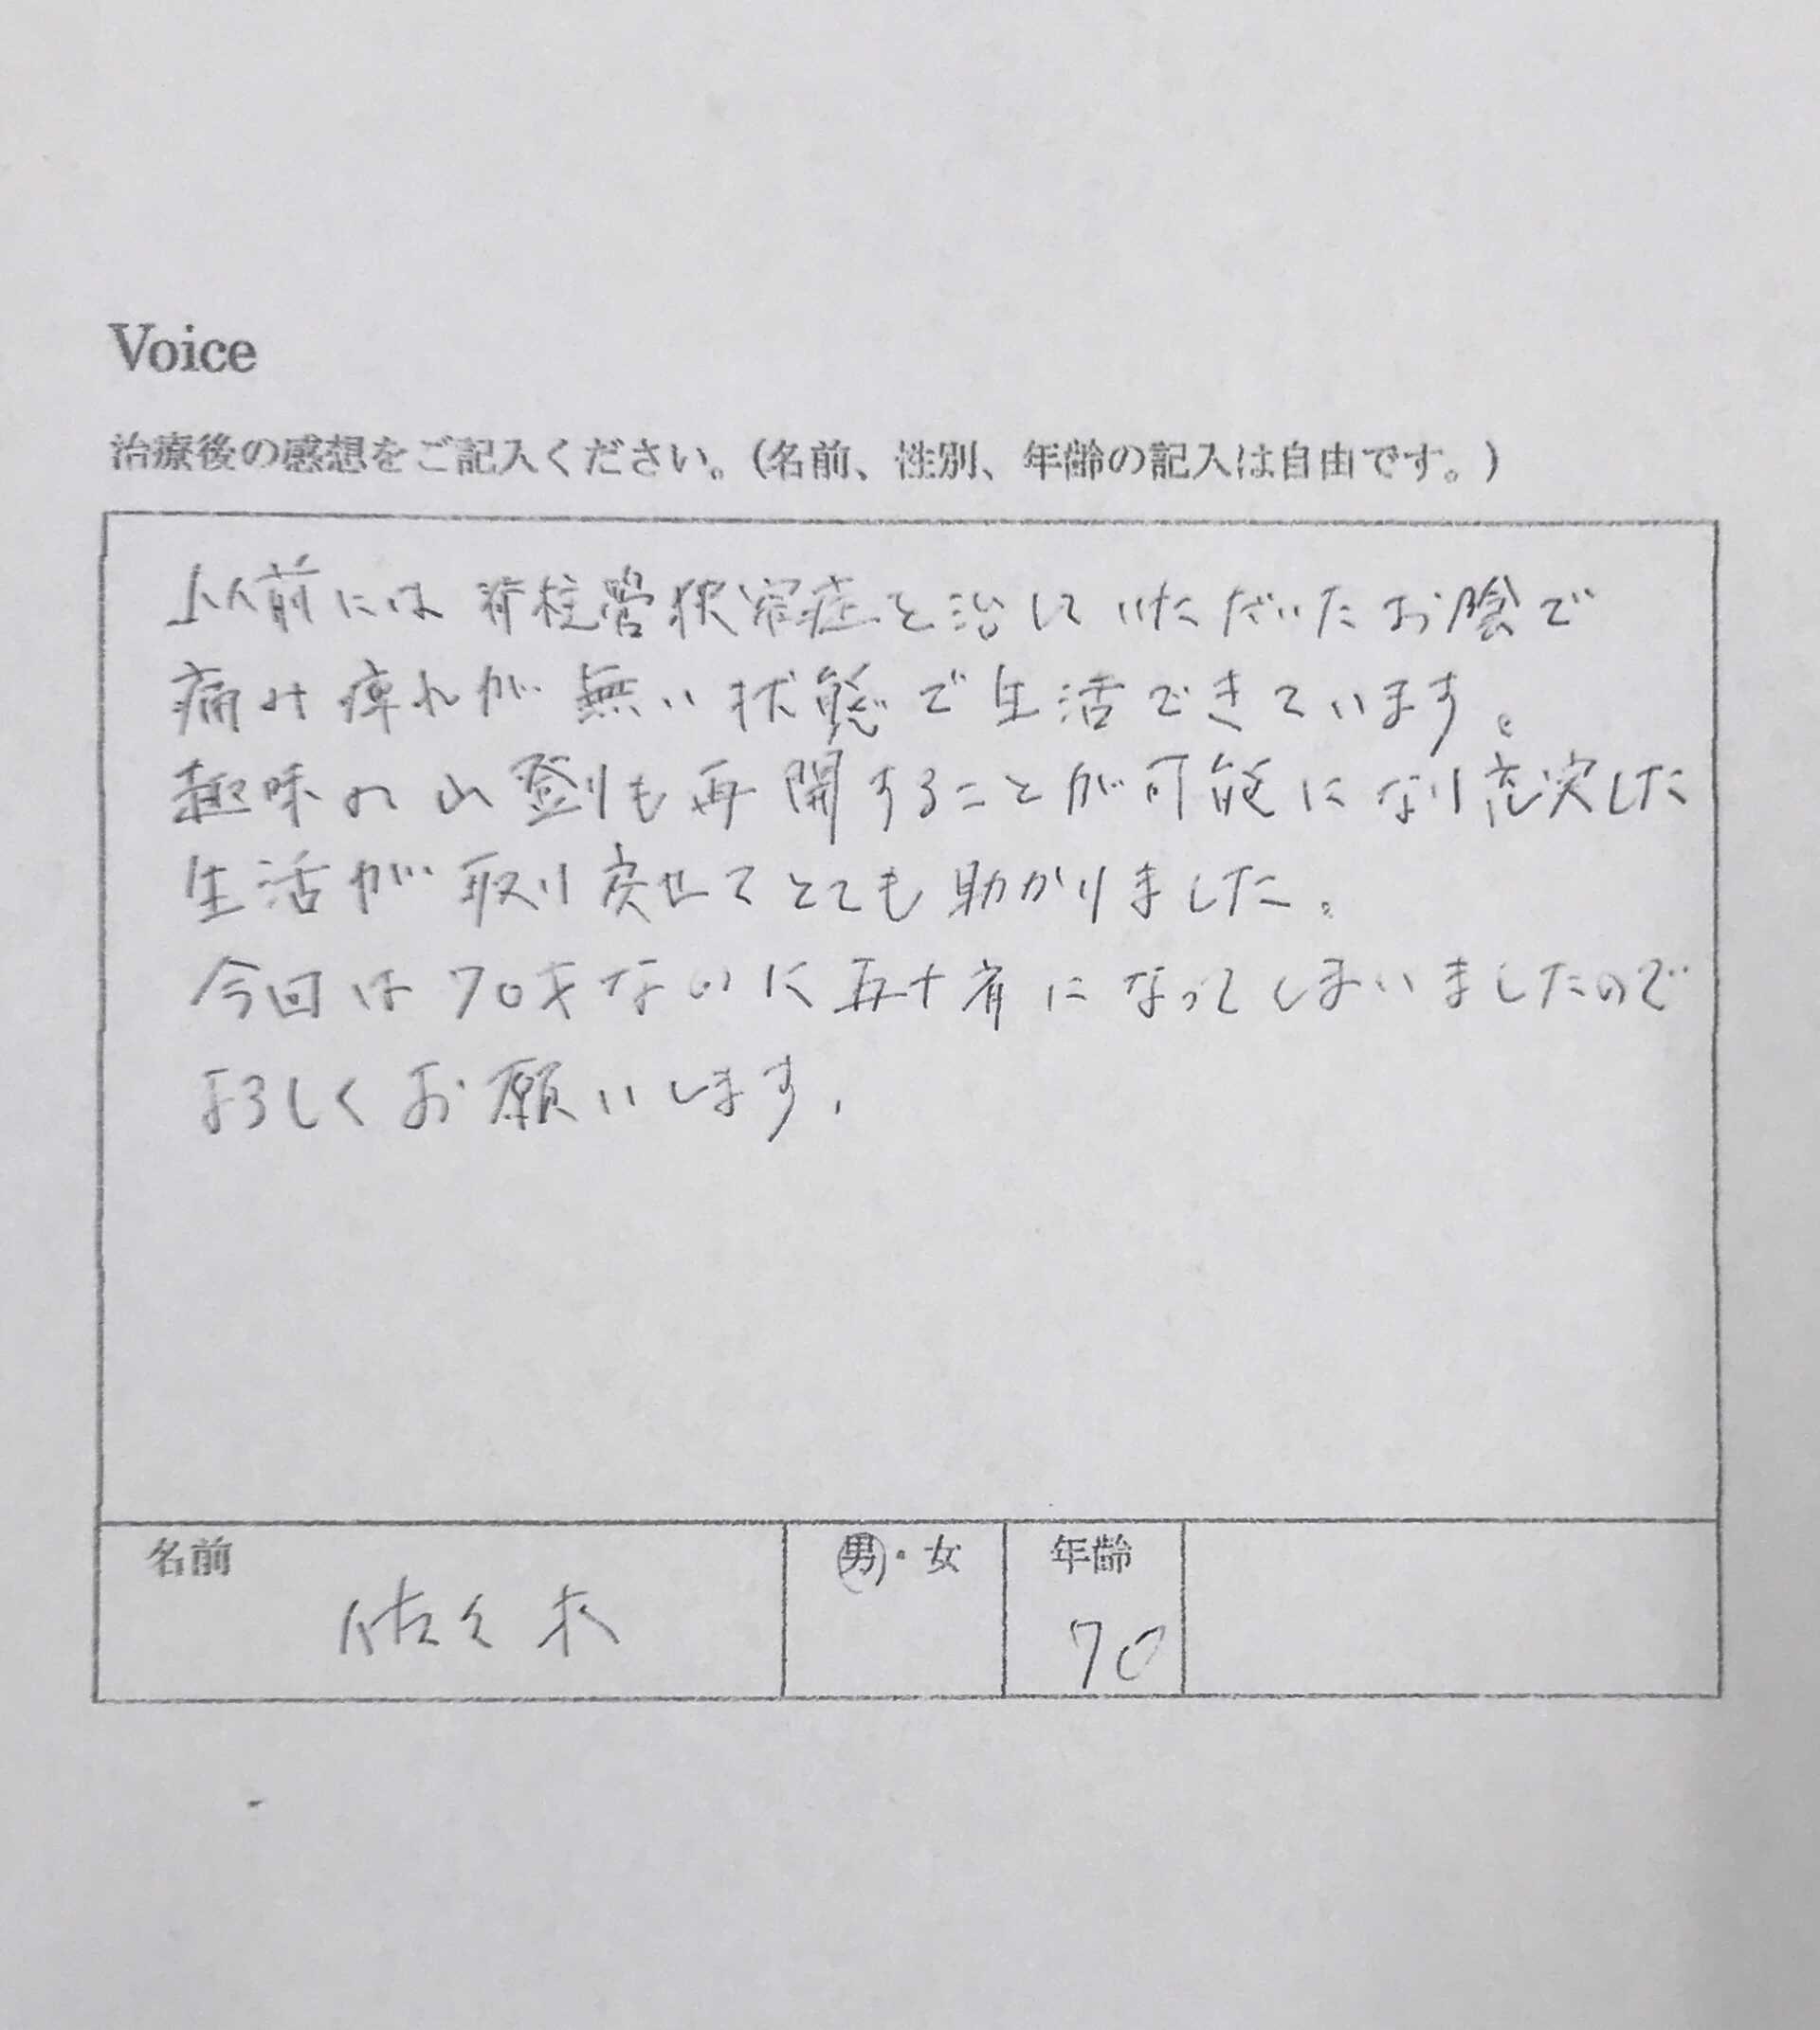 Voice
治療後の感想をご記入ください。(名前、性別、年齢の記入は自由です。)
以前には脊柱管狭窄症を治していただいたお陰で
痛み痺れが無い状態で生活できています。
趣味の山登りも再開することが可能になり充実した
生活が取り戻せてとても助かりました。
今回は70才なのに五十肩になってしまいましたので
よろしくお願いします。
名前 男・女 年齢
佐々木 70